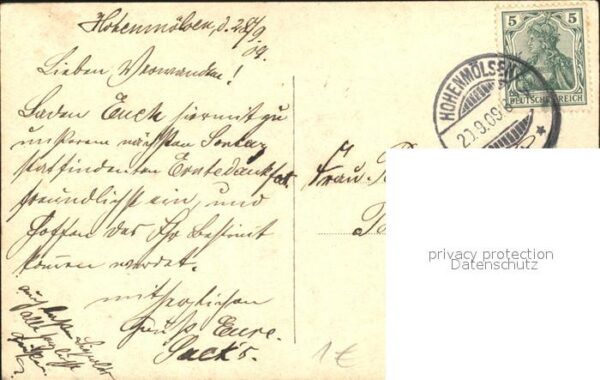 Hohenmölsen, d. 28/9
09.
Lieben Verwandten!
Laden Euch hiermit zu
unserem nächsten Sontag
stattfindenten Erntedankfest
freundlichst ein, und
hoffen das Ihr bestimt
kommen werdet.
mit herzlichen
Gruß Eure
Sack's.
auch besten
alle
Frau
5 5
DEUTSCHES REICH
HOHENMÖLSEN
9.09.8
privacy protection
Datenschutz
1€